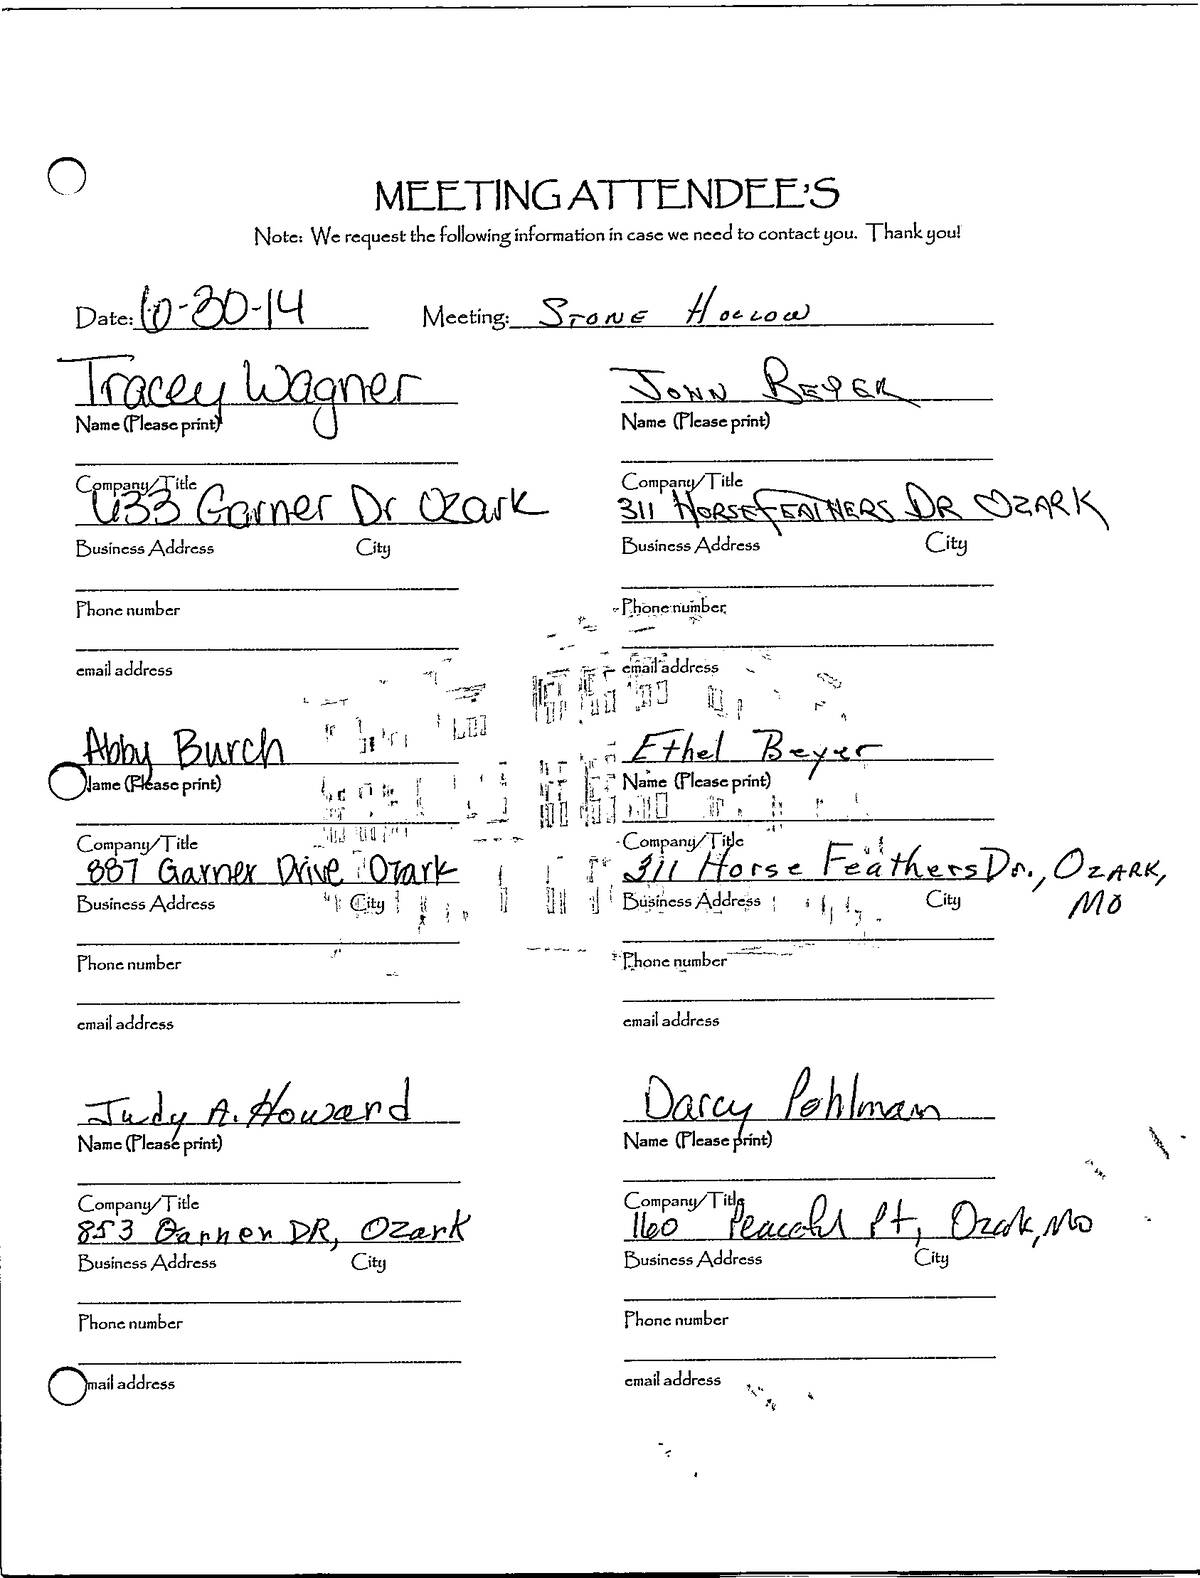 MEETING ATTENDEE'S
Note: We request the following information in case we need to contact you. Thank you!
Date: 6-30-14 Meeting: STONE HOLLOW
Tracey Wagner
Name (Please print)
Company/Title
633 Garner Dr Ozark
Business Address City
Phone number
email address
JOHN BEYER
Name (Please print)
Company/Title
311 HORSEFEATHERS DR OZARK
Business Address City
Phone number
email address
Abby Burch
Name (Please print)
Company/Title
887 Garner Drive Ozark
Business Address City
Phone number
email address
Ethel Beyer
Name (Please print)
Company/Title
311 Horse Feathers Dr., OZARK,
MO
Business Address City
Phone number
email address
Judy A. Howard
Name (Please print)
Company/Title
853 Garner DR, Ozark
Business Address City
Phone number
email address
Darcy Pohlman
Name (Please print)
Company/Title
1160 Peaceful Pt, Ozark, MO
Business Address City
Phone number
email address